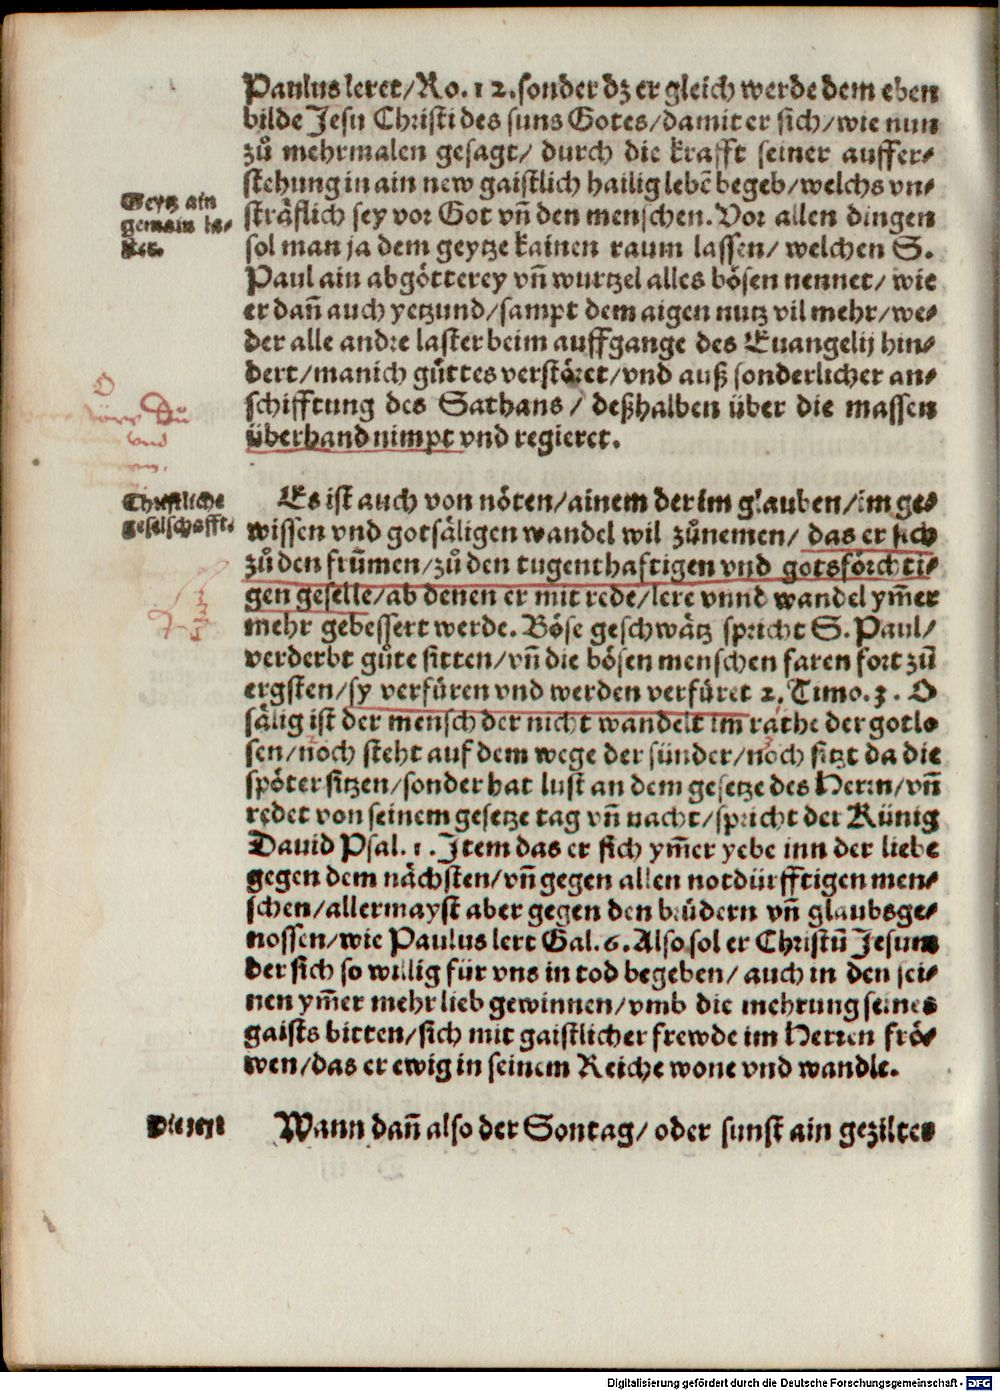 Paulus leret/Ro.12.sonder dz er gleich werde dem eben
bilde Jesu Christi des suns Gotes/damit er sich/wie nun
zů mehrmalen gesagt/ durch die krafft seiner auffer⸗
stehung in ain new gaistlich hailig lebē begeb/welchs vn⸗
Geytz ain
sträflich sey vor Got vñ den menschen. Vor allen dingen
gemain la⸗
ster.
sol man ja dem geytze kainen raum lassen/ welchen S.
Paul ain abgötterey vñ wurtzel alles bösen nennet/ wie
er dañ auch yetzund/sampt dem aigen nutz vil mehr/we⸗
der alle andre laster beim auffgange des Euangelij hin⸗
dert/manich gůttes verstöret/vnd auß sonderlicher an⸗
schifftung des Sathans/ deßhalben über die massen
überhand nimpt vnd regieret.
O
Du
vnd
Christliche
gesellschafft.
Es ist auch von nöten/ainem der im glauben/im ge⸗
wissen vnd gotsäligen wandel wil zůnemen/ das er sich
zů den frũmen/zů den tugenthaftigen vnd gotsförchti⸗
gen geselle/ab denen er mit rede/lere vnnd wandel ym̃er
mehr gebessert werde. Böse geschwätz spricht S. Paul/
verderbt gůte sitten/vñ die bösen menschen faren fort zů
ergsten/sy verfüren vnd werden verfüret 2. Timo.3. O
sälig ist der mensch der nicht wandelt im rathe der gotlo
sen/noch steht auf dem wege der sünder/noch sitzt da die
spöter sitzen/sonder hat lust an dem gesetze des Herrn/vñ
redet von seinem gesetze tag vñ nacht/spricht der Künig
Dauid Psal. 1. Item das er sich ym̃er yebe inn der liebe
gegen dem nächsten/vñ gegen allen notdürfftigen men⸗
schen/allermayst aber gegen den brüdern vñ glaubsge⸗
nossen/wie Paulus lert Gal.6. Also sol er Christũ Jesum
der sich so willig für vns in tod begeben/ auch in den sei⸗
nen ym̃er mehr lieb gewinnen/vmb die mehrung seines
gaists bitten/sich mit gaistlicher frewde im Herren frö⸗
wen/das er ewig in seinem Reiche wone vnd wandle.
Die zeyt
Wann dañ also der Sontag/ oder sunst ain geziltes
Digitalisierung gefördert durch die Deutsche Forschungsgemeinschaft - DFG